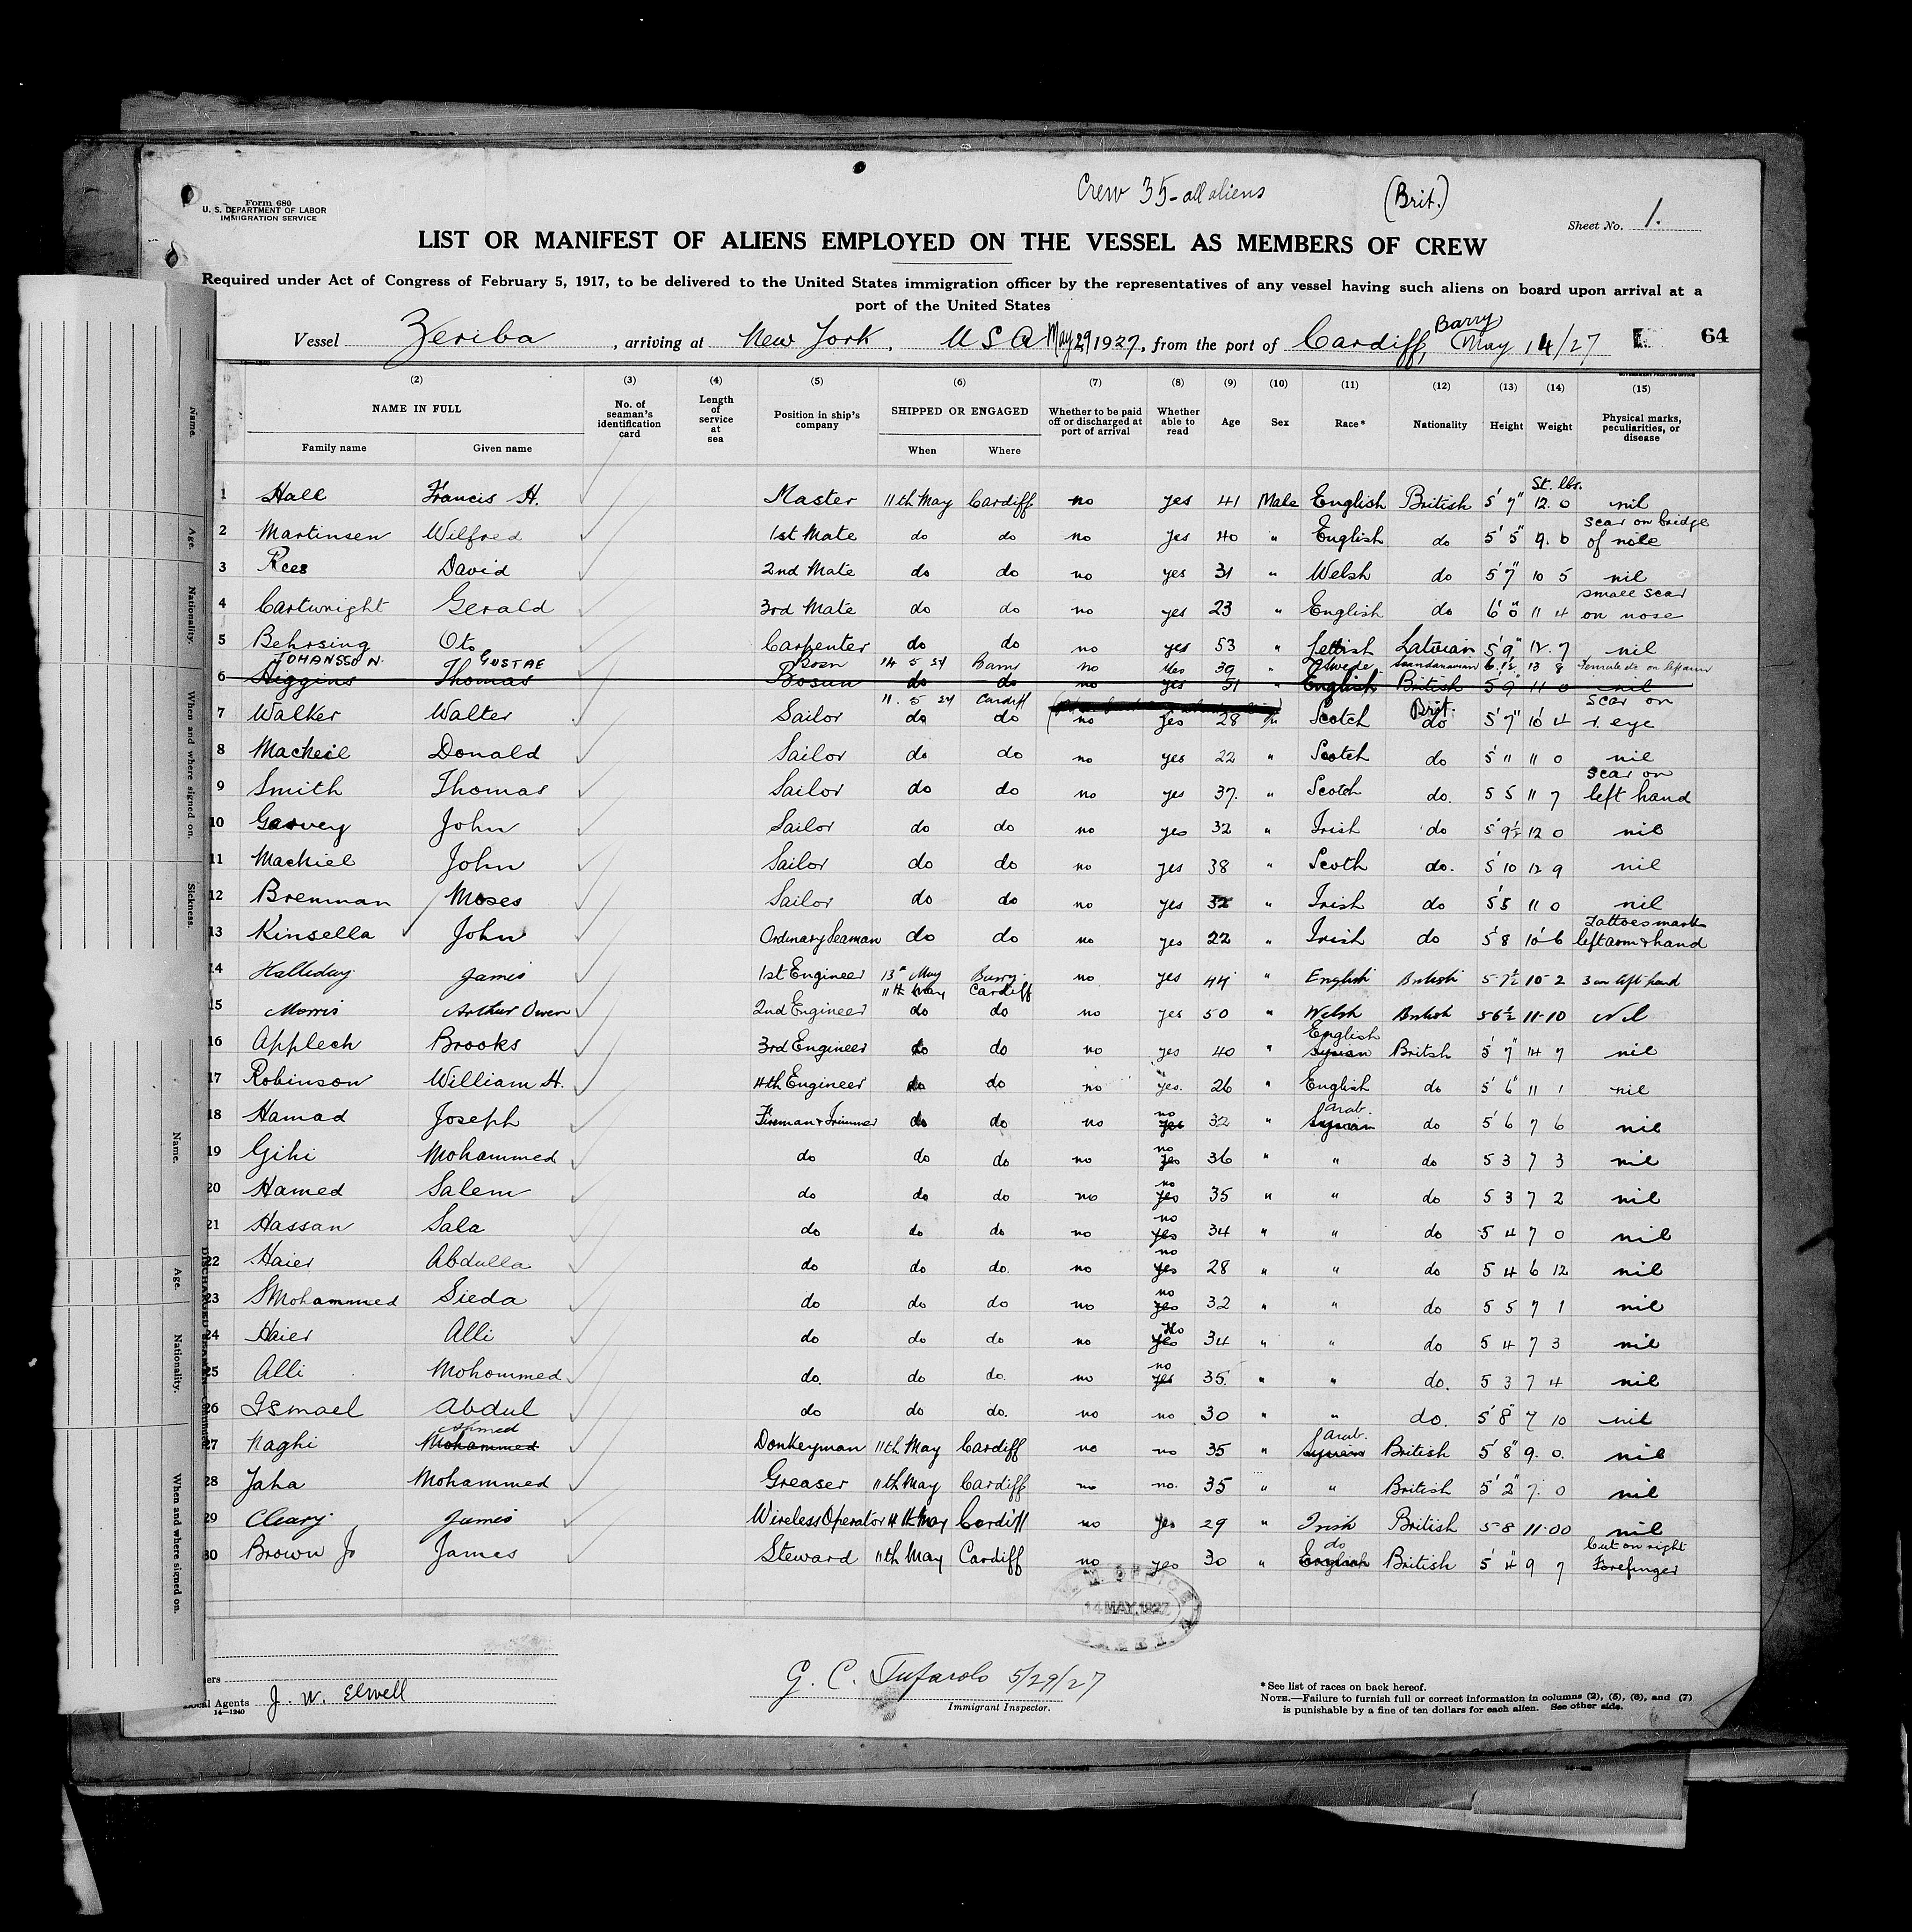 Crew 35 - all aliens (Brit.)
Form 680
U. S. DEPARTMENT OF LABOR
IMMIGRATION SERVICE
Sheet No. 1.
LIST OR MANIFEST OF ALIENS EMPLOYED ON THE VESSEL AS MEMBERS OF CREW
Required under Act of Congress of February 5, 1917, to be delivered to the United States immigration officer by the representatives of any vessel having such aliens on board upon arrival at a
port of the United States
Barry
Vessel Zeriba, arriving at New York, U S A May 29 1927, from the port of Cardiff, May 14/27 64
(2) (3) (4) (5) (6) (7) (8) (9) (10) (11) (12) (13) (14) (15)
NAME IN FULL No. of seaman's identification card Length of service at sea Position in ship's company SHIPPED OR ENGAGED Whether to be paid off or discharged at port of arrival Whether able to read Age Sex Race* Nationality Height Weight Physical marks, peculiarities, or disease
Family name Given name When Where
St. lbs.
1 Hall Francis H. Master 11th May Cardiff no yes 41 Male English British 5' 7" 12. 0 nil
2 Martinsen Wilfred 1st Mate do do no yes 40 " English do 5' 5" 9. 6 scar on bridge of nose
3 Rees David 2nd Mate do do no yes 31 " Welsh do 5' 7" 10 5 nil
4 Cartwright Gerald 3rd Mate do do no yes 23 " English do 6' 0" 11 4 small scar on nose
5 Behrsing Oto Carpenter do do no yes 53 " Lettish Latvian 5' 9" 12. 7 nil
JOHANSSON GUSTAF Bosn 14 5 27 Barry no yes 39 " Swede Scandanavian 6. 1½ 13 8 on left arm
6 Higgins Thomas Bosun do do no yes 51 " English British 5' 9" 11 0 nil
11. 5 27 Cardiff
7 Walker Walter Sailor do do no yes 28 m Scotch Brit. do 5' 7" 10 4 scar on r. eye
8 Mackeil Donald Sailor do do no yes 22 " Scotch do 5' 11 11 0 nil
9 Smith Thomas Sailor do do no yes 37. " Scotch do. 5 5 11 7 scar on left hand
10 Garvey John Sailor do do no yes 32 " Irish do 5' 9½ 12 0 nil
11 Mackiel John Sailor do do no yes 38 " Scoth do. 5' 10 12 9 nil
12 Brennan Moses Sailor do do no yes 32 " Irish do 5' 5 11 0 nil
13 Kinsella John Ordinary Seaman do do no yes 22 " Irish do 5' 8 10 6 Tattoes marks left arm & hand
14 Halliday James 1st Engineer 13th May Barry no yes 44 " English British 5-7½ 10-2 left hand
11th May Cardiff
15 Morris Arthur Owen 2nd Engineer do do no yes 50 " Welsh British 5-6½ 11-10 Nil
16 Applech Brooks 3rd Engineer do do no yes 40 " English Syrian British 5' 7" 14 7 nil
17 Robinson William H. 4th Engineer do do no yes. 26 " English do 5' 6" 11 1 nil
18 Hamad Joseph Fireman & Trimmer do do no no yes 32 " Arab. Syrian do 5' 6 7 6 nil
19 Gihi Mohammed do do do no no yes 36 " " do 5 3 7 3 nil
20 Hamed Salem do do do no no yes 35 " " do 5 3 7 2 nil
21 Hassan Sala do do do no no yes 34 " " do 5 4 7 0 nil
22 Haier Abdulla do do do. no no yes 28 " " do 5 4 6 12 nil
23 SMohammed Sieda do do do no no yes 32 " " do 5 5 7 1 nil
24 Haier Alli do do do no No yes 34 " " do 5 4 7 3 nil
25 Alli Mohommed do. do do. no no yes 35 " " do. 5 3 7 4 nil
26 Ismael Abdul do do do. no no 30 " " do. 5' 8" 7 10 nil
27 Naghi Ahmed Mohammed Donkeyman 11th May Cardiff no no 35 " Arab. Syrian British 5' 8" 9. 0. nil
28 Jaha Mohammed Greaser 11th May Cardiff no no. 35 " " British 5' 2" 7. 0 nil
29 Cleary James Wireless Operator 11th May Cardiff no yes 29 " Irish British 5-8 11-00 nil
30 Brown Jr James Steward 11th May Cardiff no yes 30 " do English British 5' 4" 9 7 Cut on right Forefinger
14 MAY 1927
BARRY
J. W. Elwell
Local Agents
14—1240
G. C. Tufarolo 5/29/27
Immigrant Inspector.
* See list of races on back hereof.
NOTE.—Failure to furnish full or correct information in columns (2), (5), (6), and (7)
is punishable by a fine of ten dollars for each alien. See other side.
Name.
Age.
Nationality.
When and where signed on.
Sickness.
Name.
Age.
Nationality.
When and where signed on.